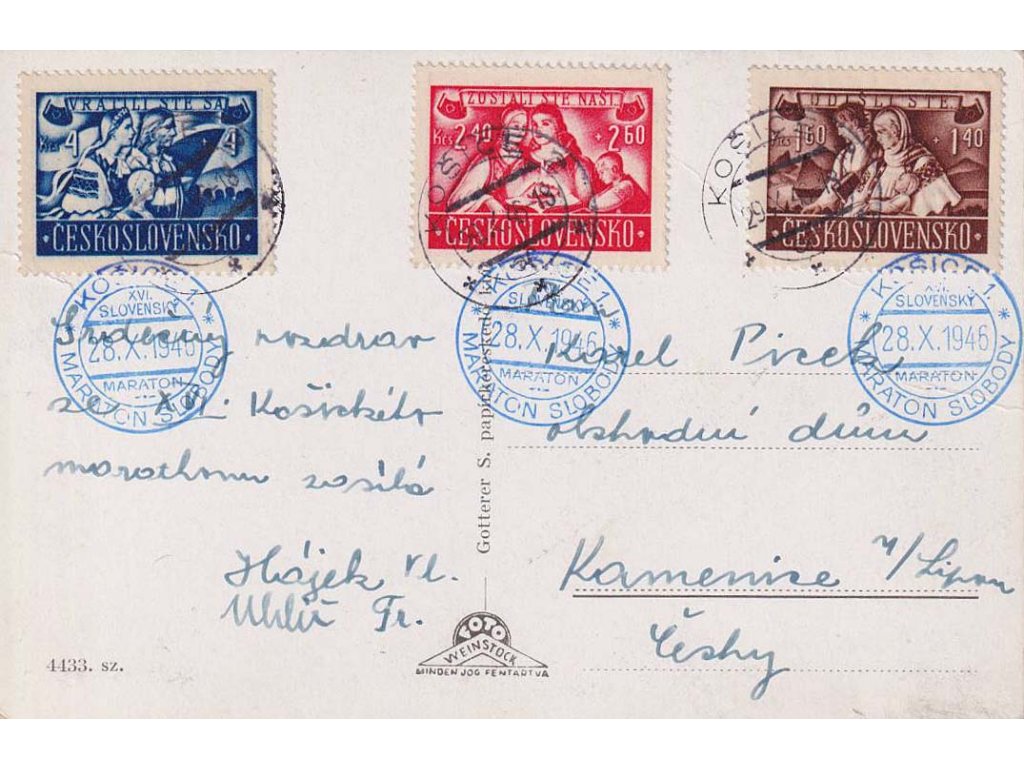 VRÁTILI STE SA
Kčs 4 + 4
·ČESKOSLOVENSKO·
ZOSTALI STE NAŠI
Kčs 2,40 + 2,60
·ČESKOSLOVENSKO·
ODIŠLI STE
Kčs 1,60 + 1,40
·ČESKOSLOVENSKO·
KOŠICE
KOŠICE
KOŠICE 1.
XVI.
SLOVENSKÝ
28.X.1946
MARATON
MARATON SLOBODY
KOŠICE 1.
SLOVENSKÝ
28.X.1946
MARATON
MARATON SLOBODY
KOŠICE 1.
XVI.
SLOVENSKÝ
28.X.1946
MARATON
MARATON SLOBODY
Srdečný pozdrav
ze XVI. Košického
marathonu zasílá
Hájek Vl.
Uhlíř Fr.
4433. sz.
Gotterer S. papirkereskedő
FOTO
WEINSTOCK
MINDEN JOG FENTARTVA
Karel Picek
obchodní dům
Kamenice n/Lipou
Čechy